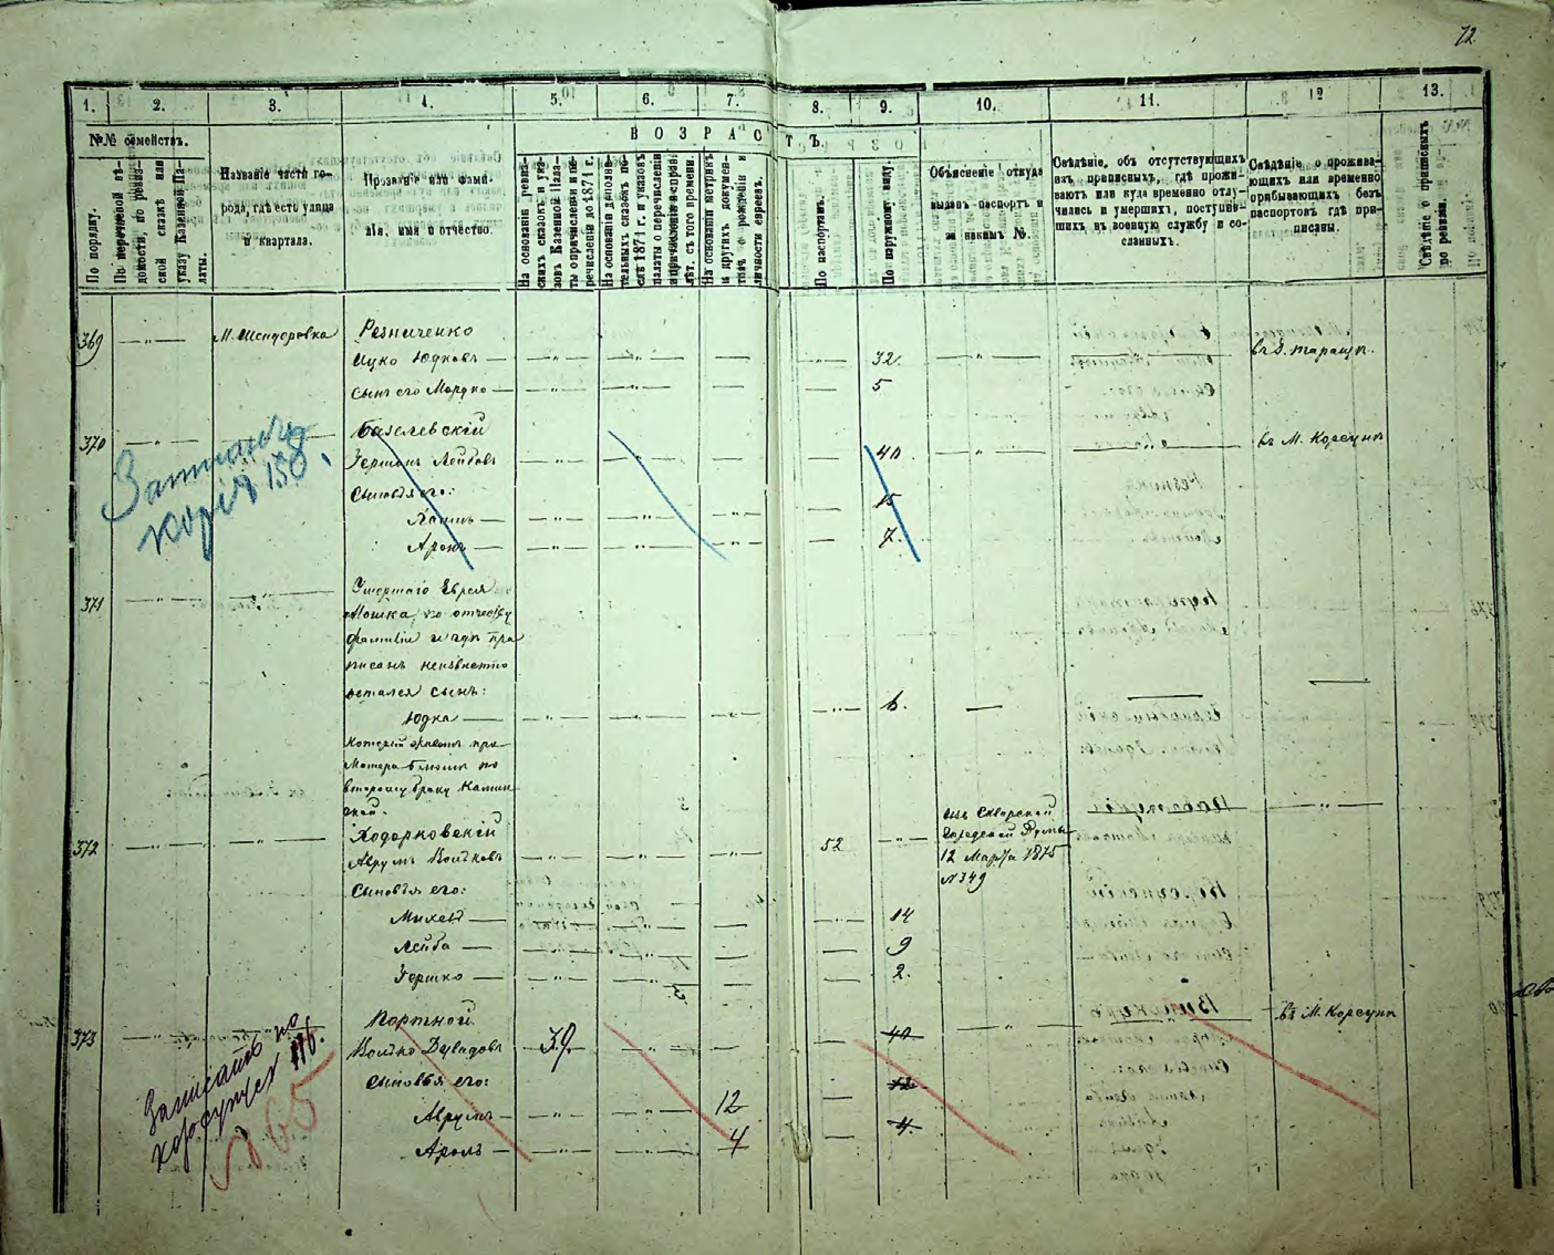 72
1. 2. 3. 4. 5. 6. 7. 8. 9. 10. 11. 12 13.
№№ семействъ.
По порядку.
указу Казенной Па-
латы.
Названіе части го-
рода, гдѣ есть улица
и квартала.
Прозваніе или фами-
лія, имя и отчество.
ВОЗРАСТЪ.
На основаніи ревиз-
скихъ сказокъ и ука-
зовъ Казенной Пала-
ты о причисленіи и пе-
речисленіи до 1871 г.
На основаніи дополни-
тельныхъ сказокъ по-
слѣ 1871 г. и указовъ
палаты о перечисленіи
лѣт. съ того времени.
На основаніи метрикъ
и другихъ докумен-
товъ о рожденіи и
личности евреевъ.
По паспортамъ.
По наружному виду.
Объясненіе откуда
выданъ паспортъ и
за какимъ №.
Свѣдѣніе, объ отсутствующихъ
изъ приписныхъ, гдѣ прожи-
ваютъ или куда временно отлу-
чились и умершихъ, поступив-
шихъ въ военную службу и со-
сланныхъ.
Свѣдѣніе о прожива-
ющихъ или временно
прибывающихъ безъ
паспортовъ гдѣ при-
писаны.
Свѣдѣніе о приписныхъ
по ревизіи.
369 М. Шендеровка Резниченко
Ицко Юдковъ 32. въ г. Таращѣ.
сынъ его Мордко 5
370 Базилевскій въ М. Корсунѣ
Гершонъ Лейбовъ 40.
Сыновья его: 15
Хаимъ 7.
Аронъ
150
371 Умершаго Еврея
Мошка, по отчеству
фамиліи и гдѣ при
писанъ неизвѣстно
остался сынъ:
Юдка 6.
который живетъ при
Матери
второму браку Камин
ской.
372 Ходорковскій 52 изъ Сквирской
Городской Думы
Аврумъ Волковъ 12 Марта 1875
№ 349
Сыновья его:
Михель 14
Лейба 9
Гершко 2.
373 Портной въ М. Корсунѣ
Волько Дувидовъ 39. 40
Сыновья его: 12
Аврумъ 12 4.
Аронъ 4
Записать по
176.
№ 65